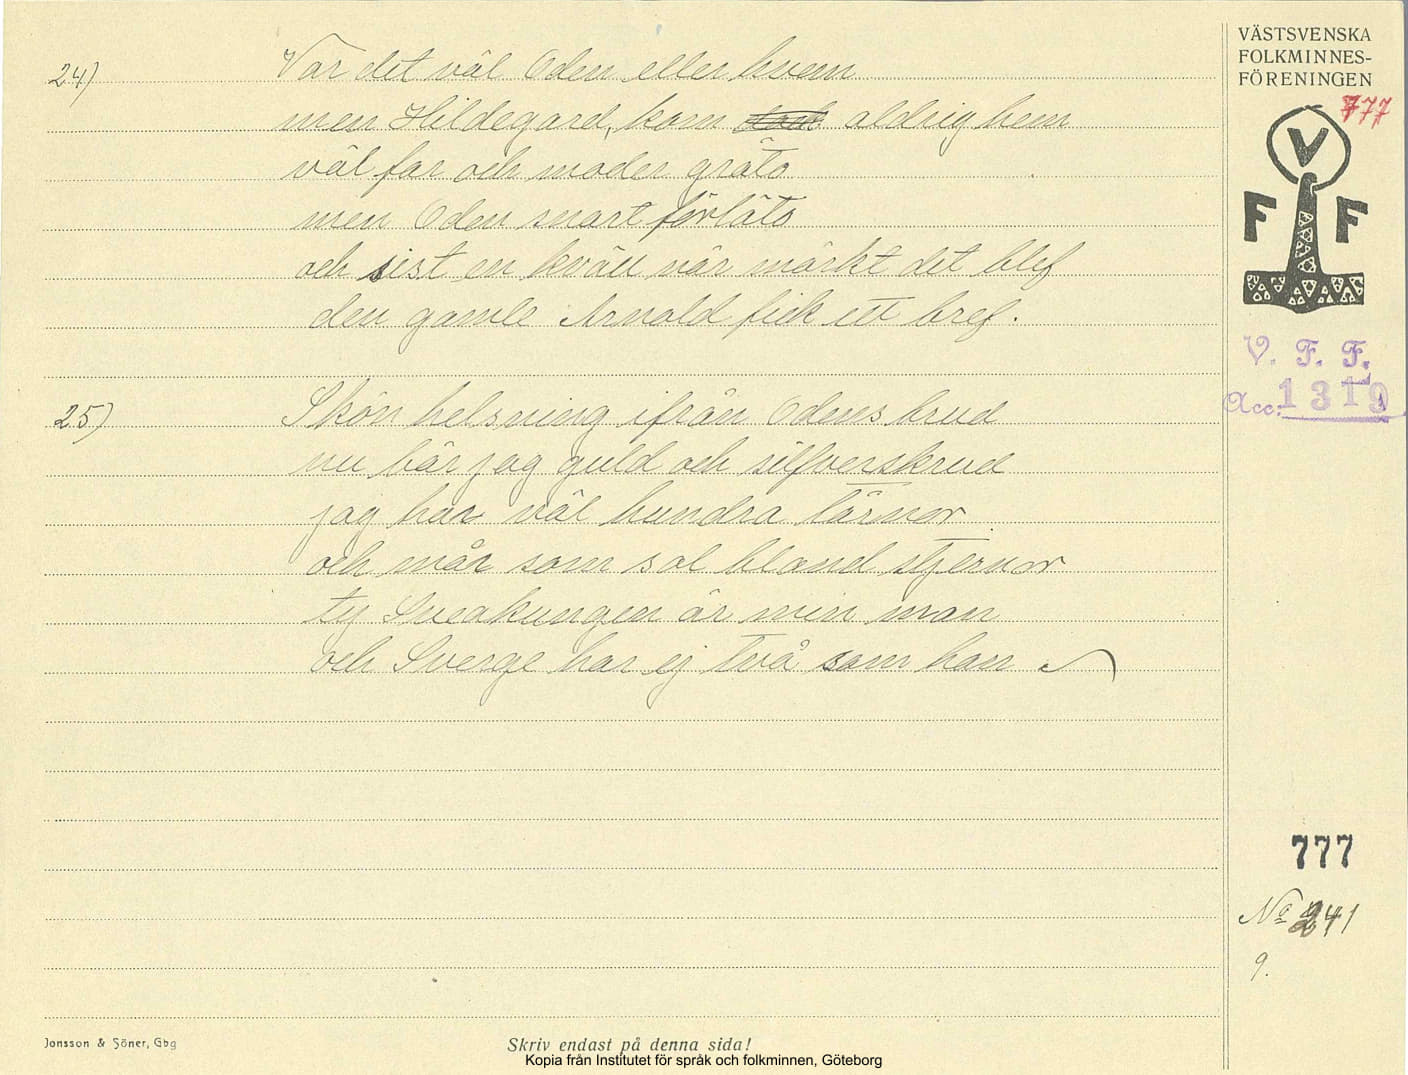 24) Var det väl Oden eller hvem
men Hildegard, kom aldrig hem
väl far och moder gräto
men Oden snart förläto
och sist en kväll när mörkt det blef
den gamle Arnold fick ett bref.
25) Skön helsning ifrån Odens brud
nu bär jag guld och silfverskrud
jag har väl hundra tärnor
och mår som sol bland stjernor
ty Sveakungen är min man
och Sverge har ej två som han
VÄSTSVENSKA
FOLKMINNES-
FÖRENINGEN
777
V
F F
V. F. F.
Acc. 1319
777
No 241
9.
Jonsson & Söner, Gbg
Skriv endast på denna sida!
Kopia från Institutet för språk och folkminnen, Göteborg